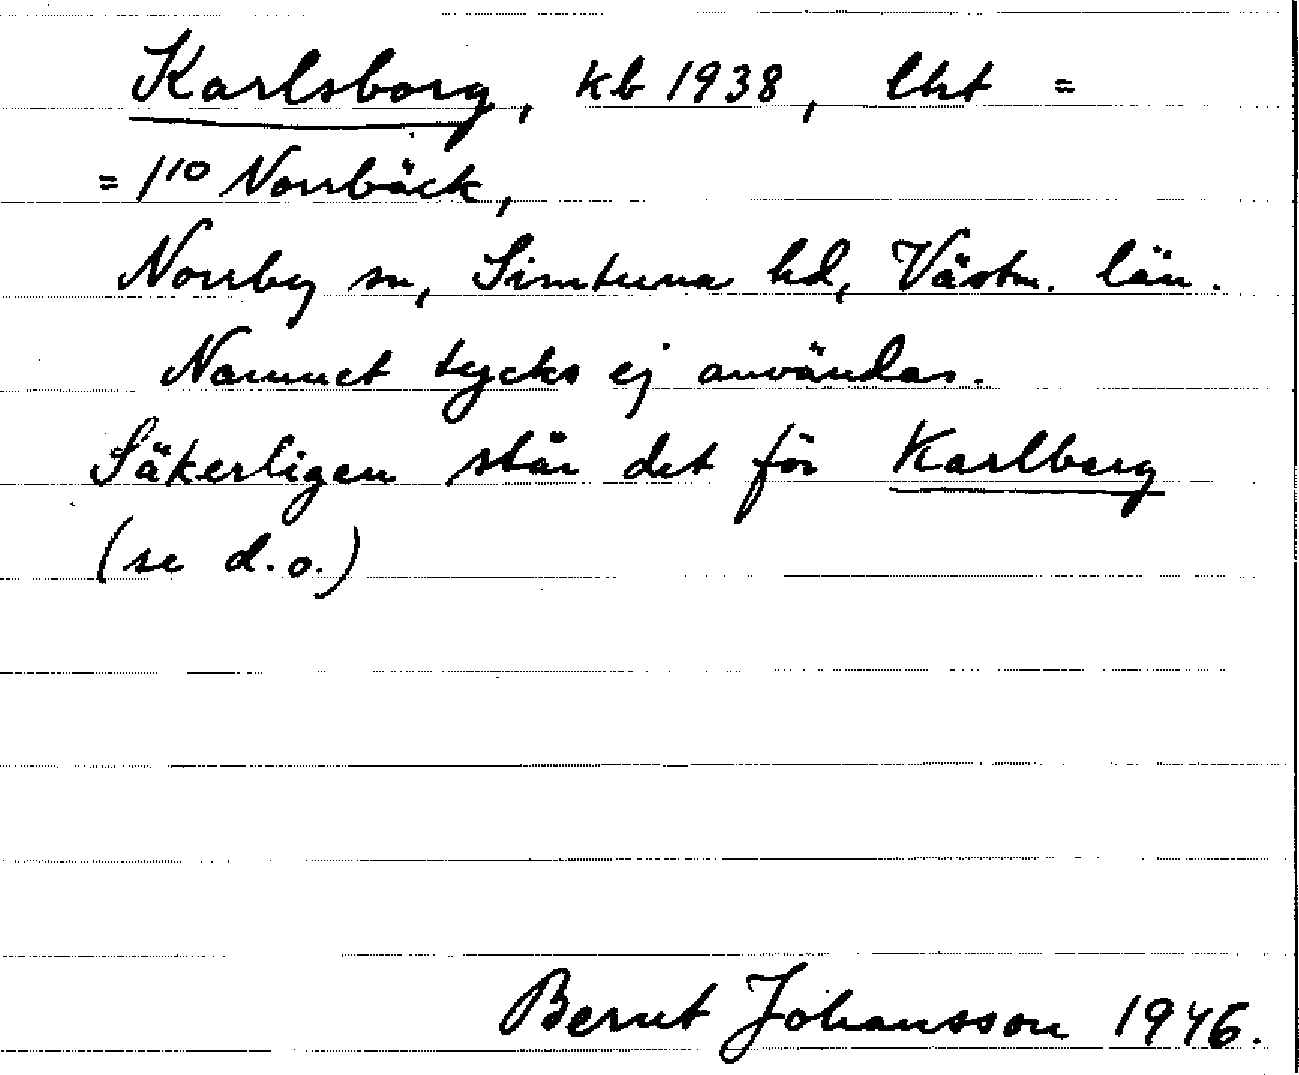 Karlsborg, kb 1938, lht =
= 1¹⁰ Norrbäck,
Norrby sn, Simtuna hd, Västm. län.
Namnet tycks ej användas.
Säkerligen står det för Karlberg
(se d.o.)
Bernt Johansson 1946.